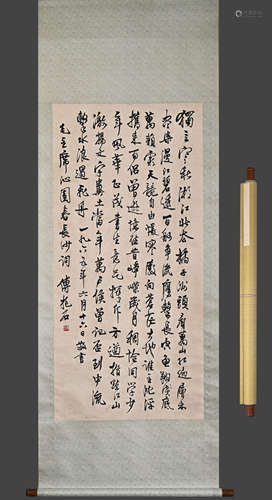 獨立寒秋湘江北去橘子洲頭看萬山紅遍層林
盡染漫江碧透百舸爭流鷹擊長空魚翔淺底
萬類霜天競自由悵寥廓問蒼茫大地誰主沉浮
携來百侣曾遊憶往昔崢嶸歲月稠恰同學少
年風華正茂書生意氣揮斥方遒指點江山
激揚文字糞土當年萬户侯曾記否到中流
擊水浪遏飛舟 一九六五年六月廿六日敬書
毛主席沁園春長沙詞 傅抱石